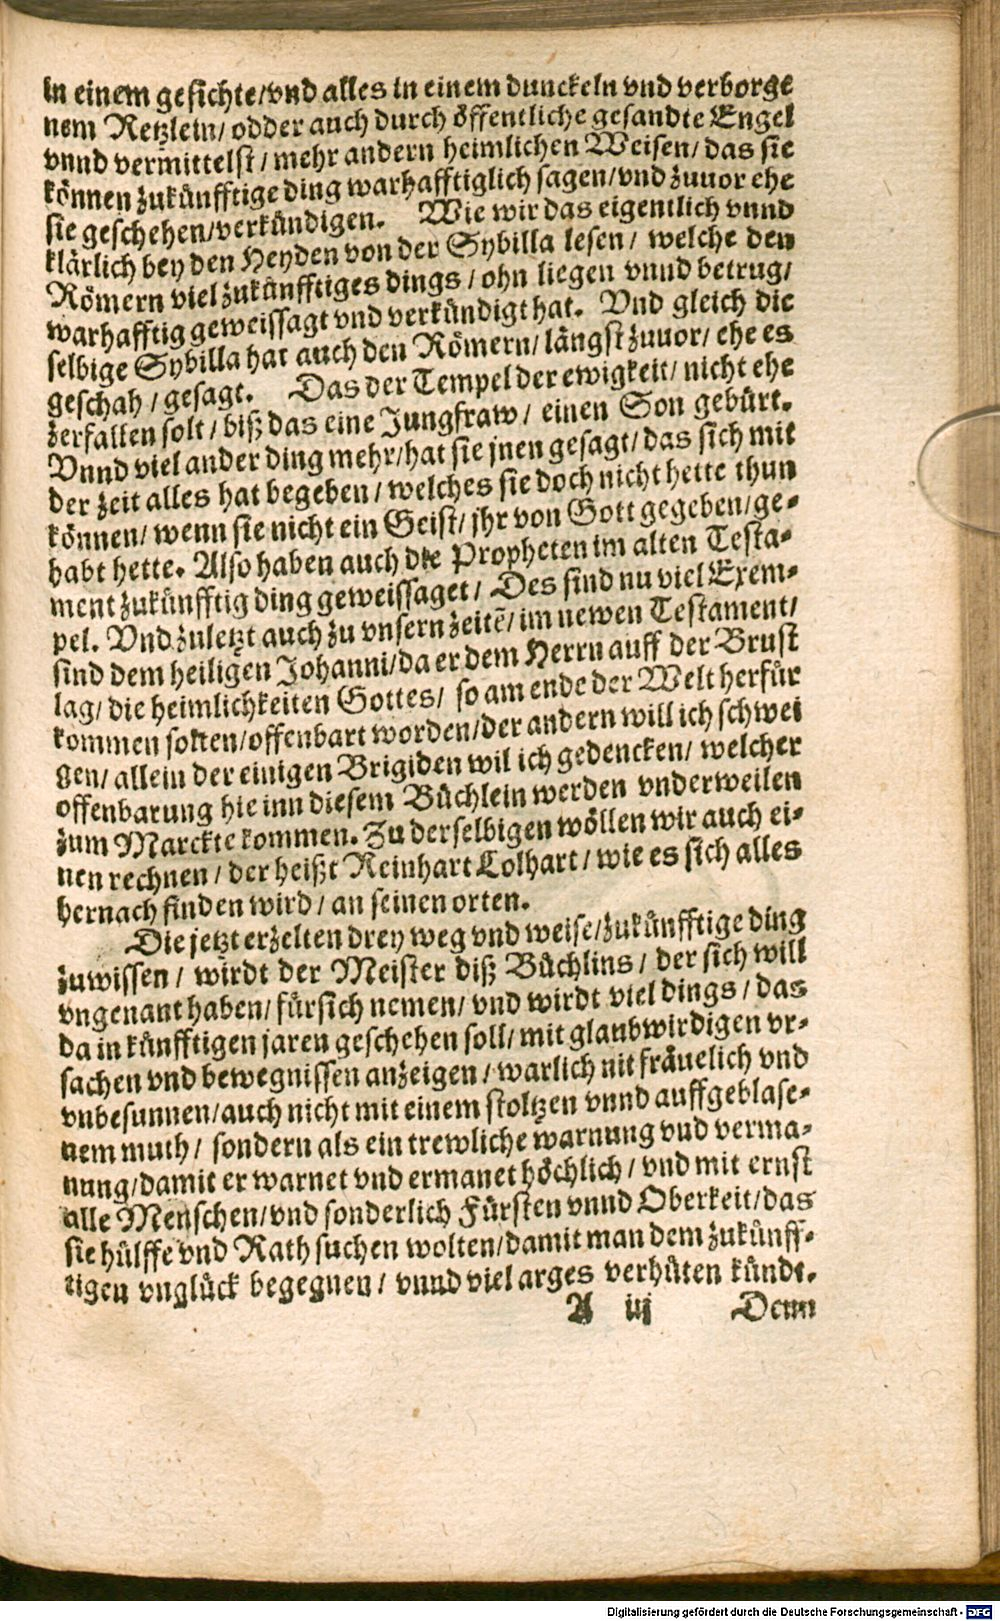 in einem gesichte/vnd alles in einem dunckeln vnd verborge
nem Retzlein/ odder auch durch öffentliche gesandte Engel
vnnd vermittelst/ mehr andern heimlichen Weisen/ das sie
können zukünfftige ding warhafftiglich sagen/vnd zuuor ehe
sie geschehen/verkündigen. Wie wir das eigentlich vnnd
klärlich bey den Heyden von der Sybilla lesen/ welche den
Römern viel zukünfftiges dings/ ohn liegen vnnd betrug/
warhafftig geweissagt vnd verkündigt hat. Vnd gleich die
selbige Sybilla hat auch den Römern/ längst zuuor/ ehe es
geschah/ gesagt. Das der Tempel der ewigkeit/ nicht ehe
zerfallen solt/ biß das eine Jungfraw/ einen Son gebürt.
Vnnd viel ander ding mehr/hat sie jnen gesagt/ das sich mit
der zeit alles hat begeben/ welches sie doch nicht hette thun
können/ wenn sie nicht ein Geist/ jhr von Gott gegeben/ge-
habt hette. Also haben auch die Propheten im alten Testa-
ment zukünfftig ding geweissaget/ Des sind nu viel Exem-
pel. Vnd zuletzt auch zu vnsern zeitē/ im newen Testament/
sind dem heiligen Johanni/da er dem Herrn auff der Brust
lag/ die heimlichkeiten Gottes/ so am ende der Welt herfür
kommen solten/offenbart worden/der andern will ich schwei
gen/ allein der einigen Brigiden wil ich gedencken/ welcher
offenbarung hie inn diesem Büchlein werden vnderweilen
zum Marckte kommen. Zu derselbigen wöllen wir auch ei-
nen rechnen/ der heißt Reinhart Lolhart/ wie es sich alles
hernach finden wird/ an seinen orten.
Die jetzt erzelten drey weg vnd weise/zukünfftige ding
zuwissen/ wirdt der Meister diß Büchlins/ der sich will
vngenant haben/ fürsich nemen/ vnd wirdt viel dings/ das
da in künfftigen jaren geschehen soll/ mit glaubwirdigen vr-
sachen vnd bewegnissen anzeigen/ warlich nit fräuelich vnd
vnbesunnen/auch nicht mit einem stoltzen vnnd auffgeblase-
nem muth/ sondern als ein trewliche warnung vnd verma-
nung/damit er warnet vnd ermanet höchlich/ vnd mit ernst
alle Menschen/vnd sonderlich Fürsten vnnd Oberkeit/das
sie hülffe vnd Rath suchen wolten/damit man dem zukünff-
tigen vnglück begegnen/ vnnd viel arges verhüten künde.
A iij Denn
Digitalisierung gefördert durch die Deutsche Forschungsgemeinschaft - DFG